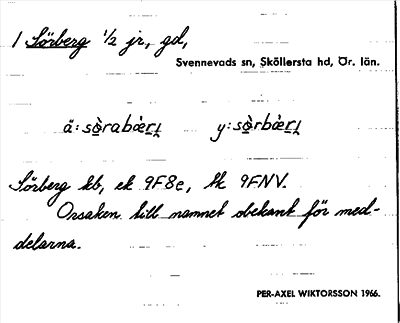 1 Sörberg ½ jr, gd,
Svennevads sn, Sköllersta hd, Ör. län.
ä: sò̤rabæ̀rı̣ y: sò̤rbæ̀rı̣
Sörberg kb, ek 9F8e, tk 9FNV.
Orsaken till namnet obekant för med-
delarna.
PER-AXEL WIKTORSSON 1966.